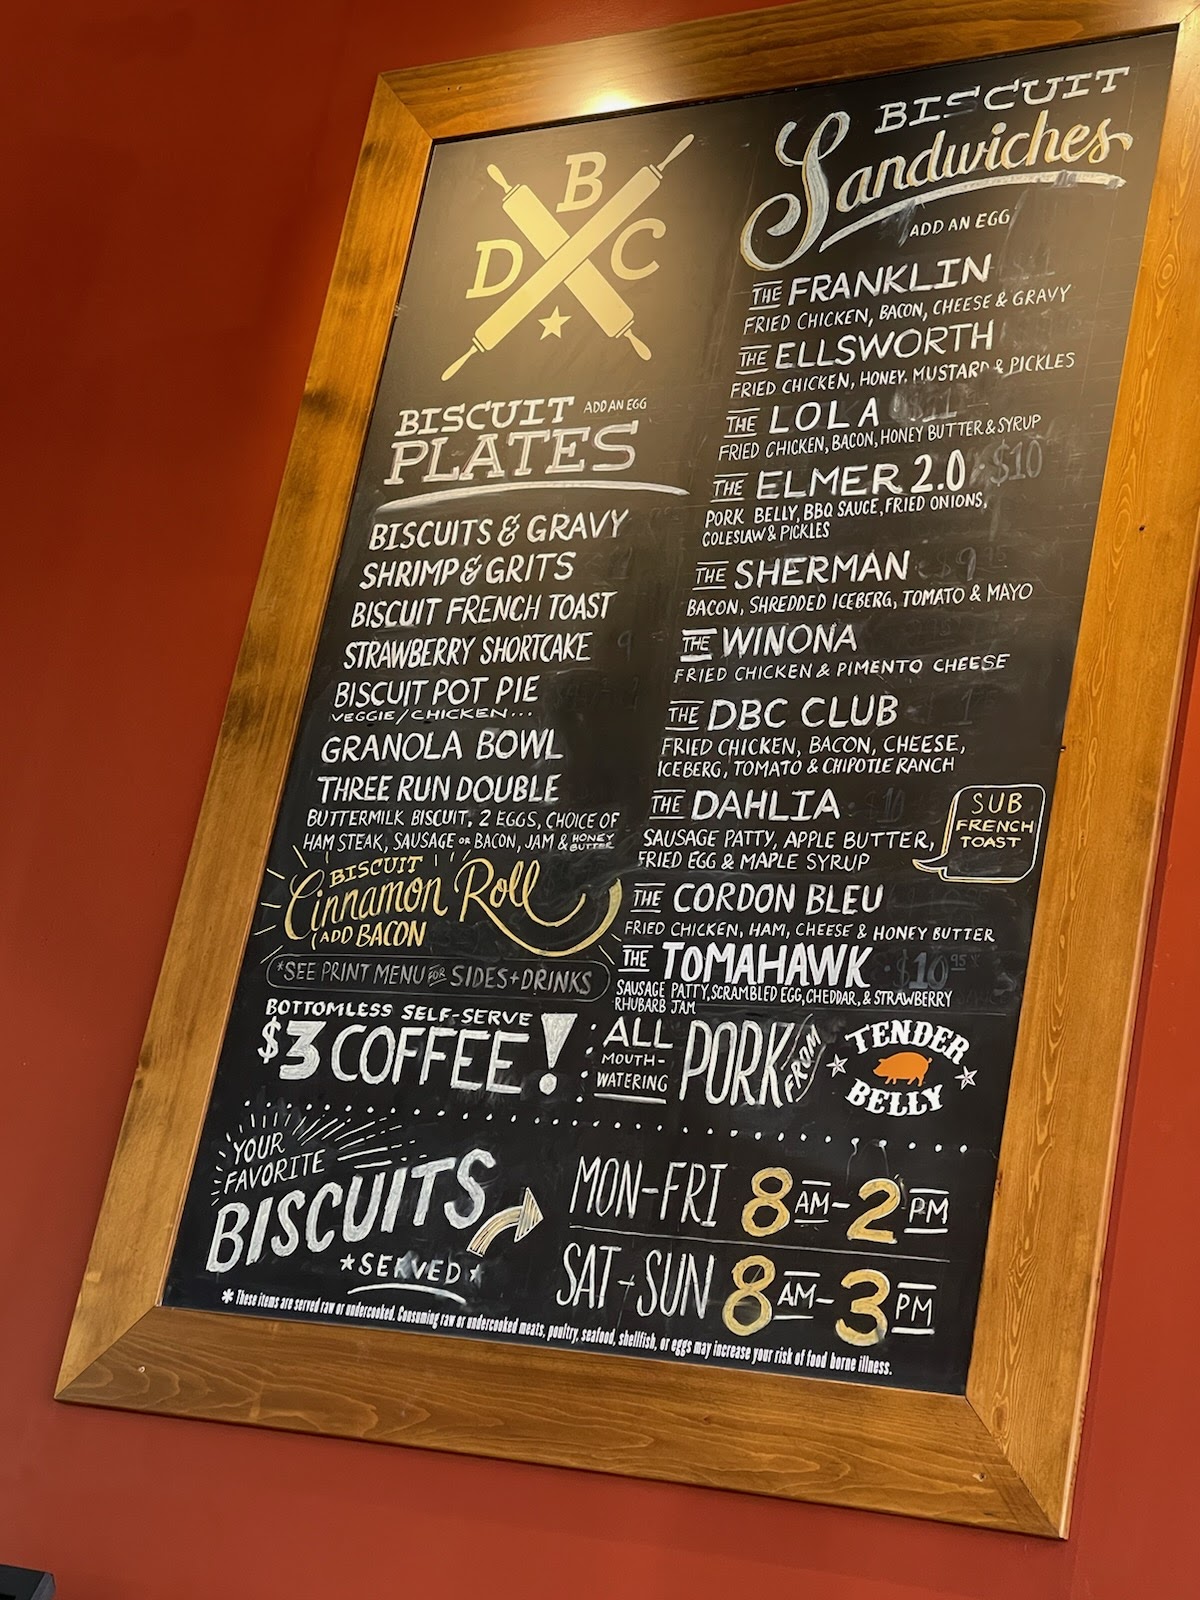 B
D C
BISCUIT ADD AN EGG
PLATES
BISCUITS & GRAVY
SHRIMP & GRITS
BISCUIT FRENCH TOAST
STRAWBERRY SHORTCAKE
BISCUIT POT PIE
VEGGIE/CHICKEN...
GRANOLA BOWL
THREE RUN DOUBLE
BUTTERMILK BISCUIT, 2 EGGS, CHOICE OF
HAM STEAK, SAUSAGE OR BACON, JAM & HONEY BUTTER
BISCUIT
Cinnamon Roll
(ADD BACON
*SEE PRINT MENU FOR SIDES + DRINKS
BOTTOMLESS SELF-SERVE
$3 COFFEE!
BISCUIT
Sandwiches
ADD AN EGG
THE FRANKLIN
FRIED CHICKEN, BACON, CHEESE & GRAVY
THE ELLSWORTH
FRIED CHICKEN, HONEY, MUSTARD & PICKLES
THE LOLA
FRIED CHICKEN, BACON, HONEY BUTTER & SYRUP
THE ELMER 2.0 $10
PORK BELLY, BBQ SAUCE, FRIED ONIONS,
COLESLAW & PICKLES
THE SHERMAN
BACON, SHREDDED ICEBERG, TOMATO & MAYO
THE WINONA
FRIED CHICKEN & PIMENTO CHEESE
THE DBC CLUB
FRIED CHICKEN, BACON, CHEESE,
ICEBERG, TOMATO & CHIPOTLE RANCH
THE DAHLIA $10
SAUSAGE PATTY, APPLE BUTTER,
FRIED EGG & MAPLE SYRUP
SUB
FRENCH
TOAST
THE CORDON BLEU
FRIED CHICKEN, HAM, CHEESE & HONEY BUTTER
THE TOMAHAWK $10.95
SAUSAGE PATTY, SCRAMBLED EGG, CHEDDAR, & STRAWBERRY
RHUBARB JAM
ALL
MOUTH-
WATERING
PORK FROM
TENDER
BELLY
YOUR
FAVORITE
BISCUITS
SERVED
MON-FRI 8AM-2PM
SAT-SUN 8AM-3PM
* These items are served raw or undercooked. Consuming raw or undercooked meats, poultry, seafood, shellfish, or eggs may increase your risk of food borne illness.